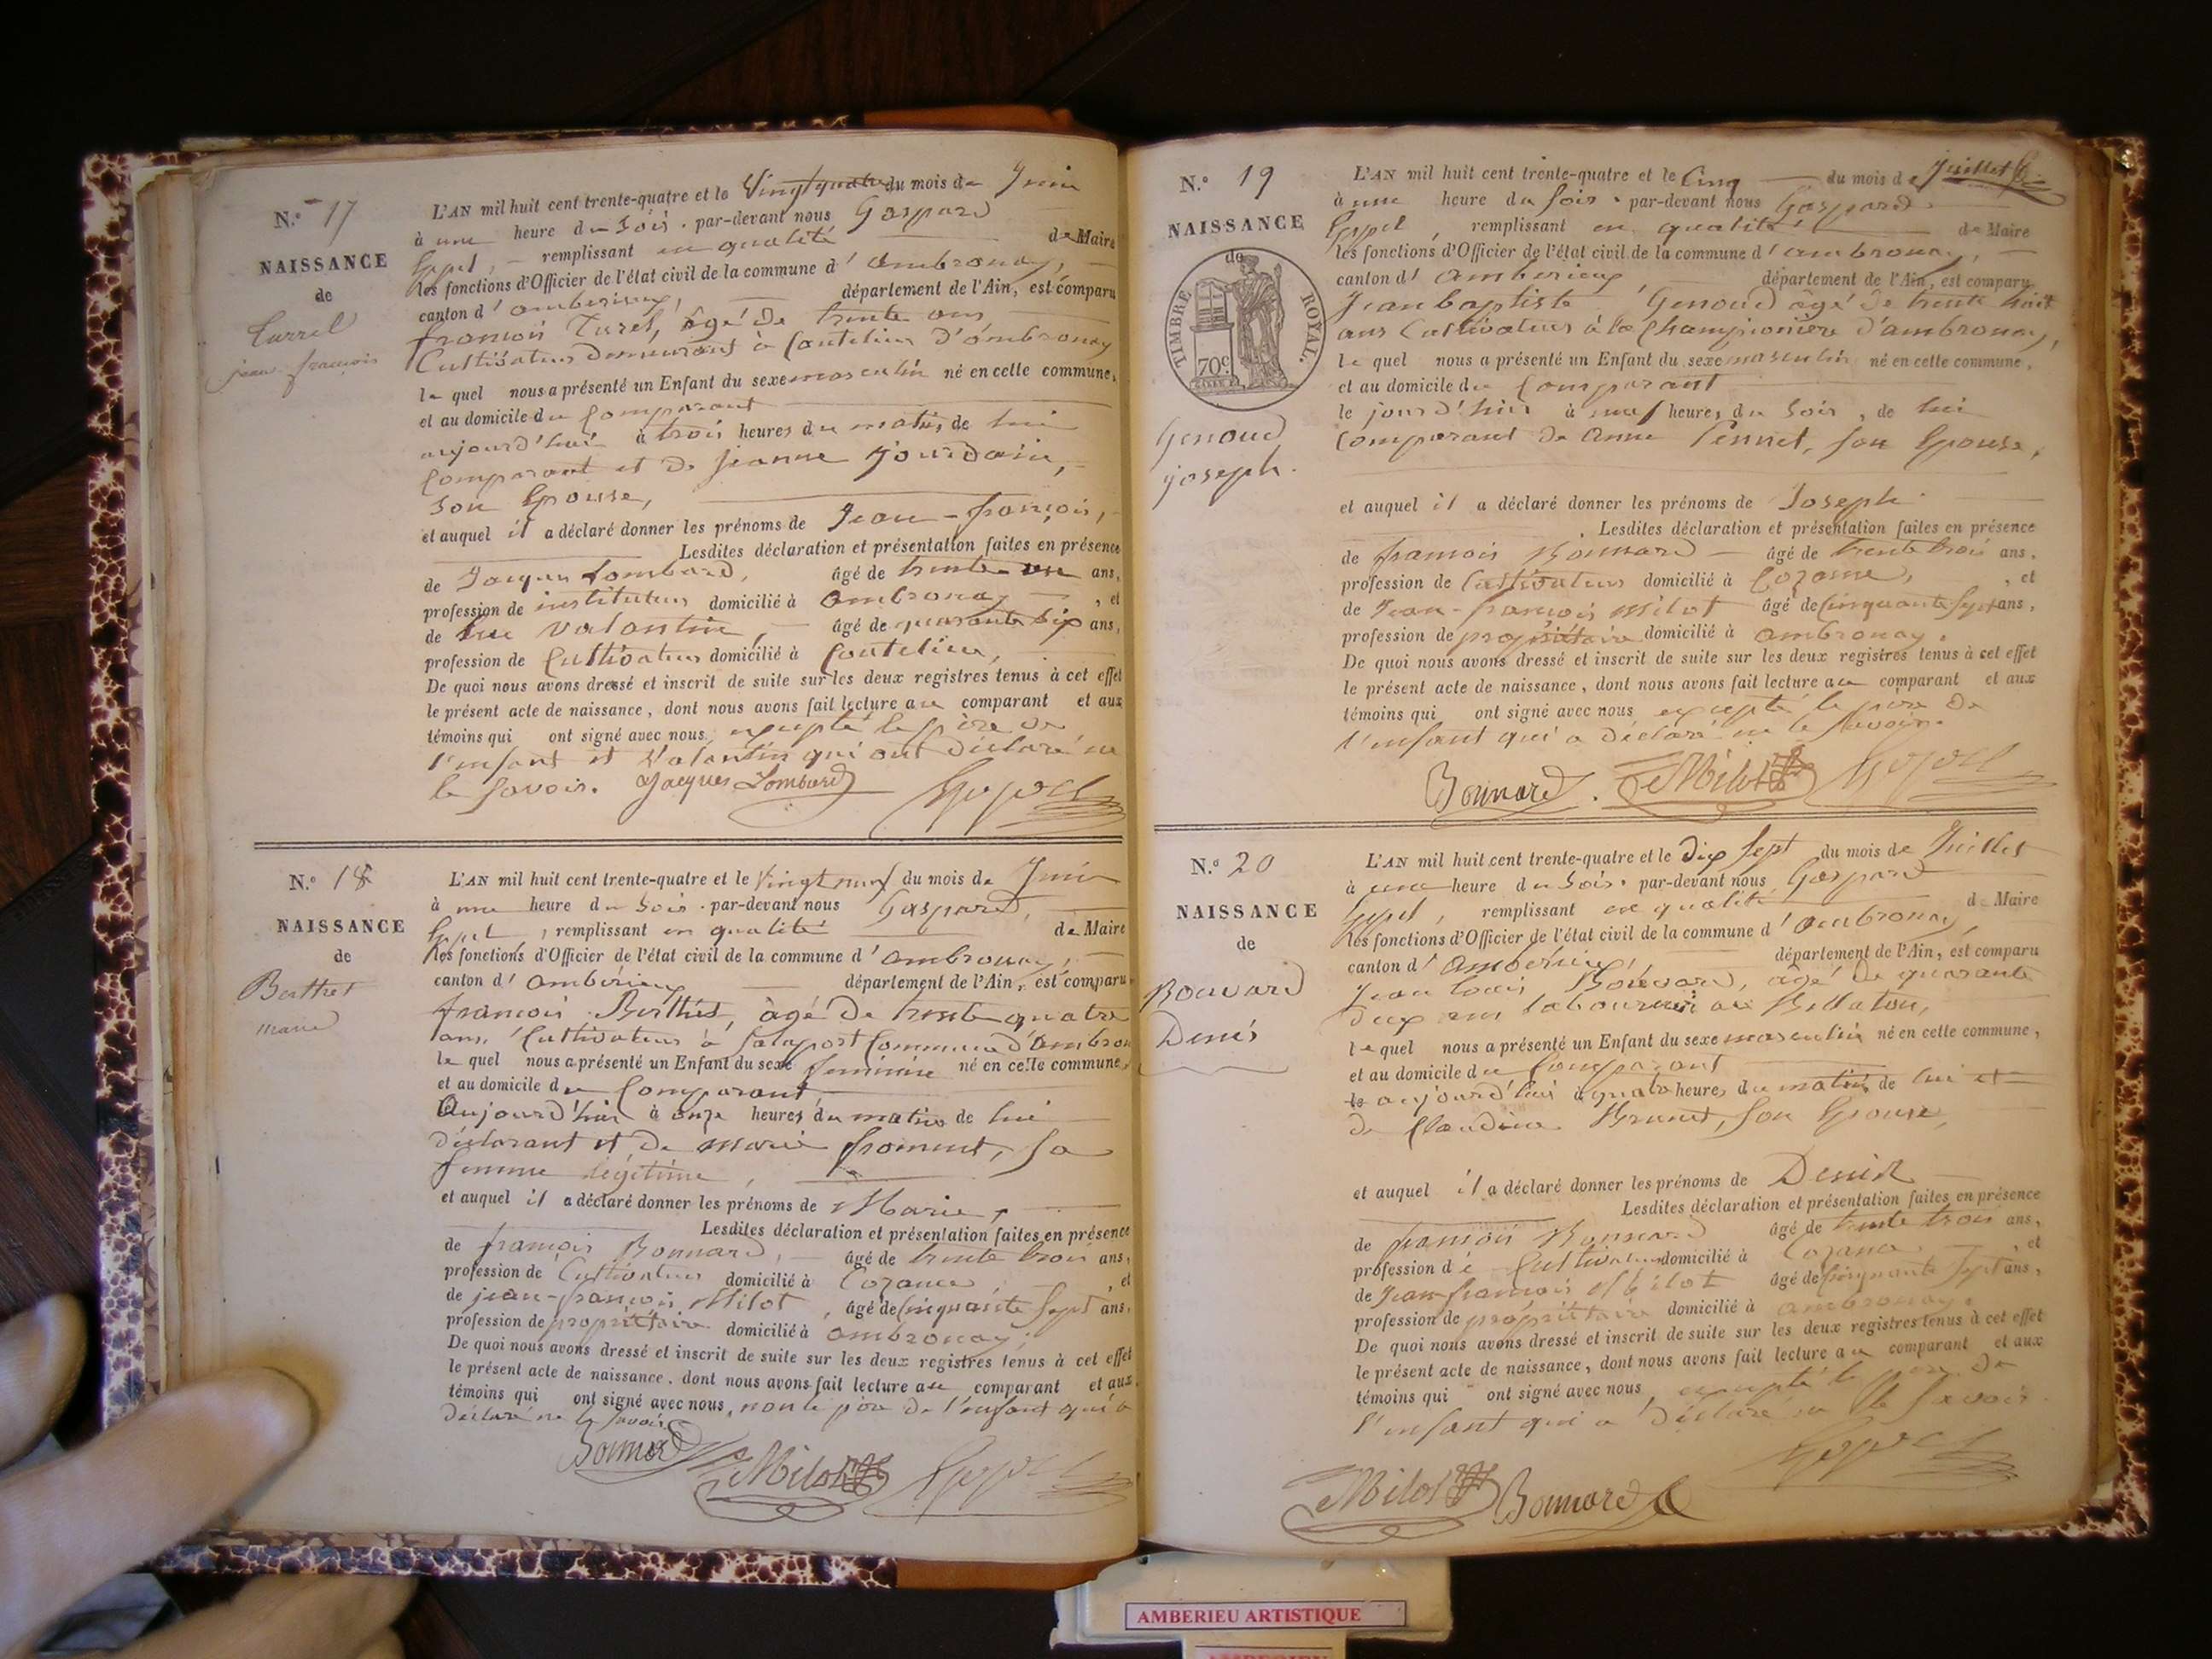 N.° 17
NAISSANCE
de
Turrel
jean françois
L'AN mil huit cent trente-quatre et le Vingt quatre du mois de Juin
à une heure du Soir . par-devant nous Gaspard
remplissant en qualité de Maire
les fonctions d'Officier de l'état civil de la commune d'ambronay,
canton d'amberieux, département de l'Ain, est comparu
françois Turel, âgé de trente ans
Cultivateur demeurant à Coutelieu d'ambronay
le quel nous a présenté un Enfant du sexe masculin né en cette commune,
et au domicile du Comparant
aujourd'hui à trois heures du matin de lui
Comparant et de jeanne Jourdain,
Son Epouse,
et auquel il a déclaré donner les prénoms de Jean-françois,
Lesdites déclaration et présentation faites en présence
de Jacques Lombard, âgé de trente un ans,
profession de instituteur domicilié à ambronay , et
de Valantin, âgé de quarante six ans,
profession de Cultivateur domicilié à Coutelieu,
De quoi nous avons dressé et inscrit de suite sur les deux registres tenus à cet effet
le présent acte de naissance, dont nous avons fait lecture au comparant et aux
témoins qui ont signé avec nous, excepté le père de
l'enfant et Valantin qui ont déclaré ne
le Savoir. Jacques Lombard
N.° 18
NAISSANCE
de
Berthet
marie
L'AN mil huit cent trente-quatre et le Vingt neuf du mois de Juin
à une heure du Soir . par-devant nous Gaspard,
, remplissant en qualité de Maire
les fonctions d'Officier de l'état civil de la commune d'ambronay,
canton d'ambérieux département de l'Ain, est comparu
françois Berthet, âgé de trente quatre
ans, Cultivateur à Salaport Commune d'ambron
le quel nous a présenté un Enfant du sexe féminine né en cette commune,
et au domicile du Comparant
Aujourd'hui à onze heures du matin de lui
déclarant et de marie froment, Sa
femme légitime,
et auquel il a déclaré donner les prénoms de Marie,
Lesdites déclaration et présentation faites en présence
de françois Bonnard, âgé de trente trois ans,
profession de Cultivateur domicilié à Cozance , et
de jean-françois Milot, âgé de Cinquante Sept ans,
profession de propriétaire domicilié à ambronay,
De quoi nous avons dressé et inscrit de suite sur les deux registres tenus à cet effet
le présent acte de naissance, dont nous avons fait lecture au comparant et aux
témoins qui ont signé avec nous, non le père de l'enfant qui a
déclaré ne le Savoir
Bonnard Milot
N.° 19
NAISSANCE
de
TIMBRE ROYAL.
70c
Genoud
joseph.
L'AN mil huit cent trente-quatre et le Cinq du mois de Juillet
à une heure du Soir . par-devant nous Gaspard
, remplissant en qualité de Maire
les fonctions d'Officier de l'état civil de la commune d'ambronay,
canton d'amberieux, département de l'Ain, est comparu
Jean baptiste Genoud âgé de trente huit
ans Cultivateur à la Championière d'ambronay,
le quel nous a présenté un Enfant du sexe masculin né en cette commune,
et au domicile du Comparant
le jour d'hier à neuf heures du Soir , de lui
Comparant de Anne Pennet, Son Epouse,
et auquel il a déclaré donner les prénoms de Joseph
Lesdites déclaration et présentation faites en présence
de françois Bonnard âgé de trente trois ans,
profession de Cultivateur domicilié à Cozance, , et
de Jean-françois Milot âgé de Cinquante Sept ans,
profession de propriétaire domicilié à ambronay.
De quoi nous avons dressé et inscrit de suite sur les deux registres tenus à cet effet
le présent acte de naissance, dont nous avons fait lecture au comparant et aux
témoins qui ont signé avec nous excepté le père de
l'enfant qui a déclaré ne le Savoir.
Bonnard. Milot
N.° 20
NAISSANCE
de
Bouvard
Denis
L'AN mil huit cent trente-quatre et le dix Sept du mois de Juillet
à une heure du Soir . par-devant nous Gaspard
, remplissant en qualité de Maire
les fonctions d'Officier de l'état civil de la commune d'ambronay
canton d'amberieux, département de l'Ain, est comparu
Jean louis Bouvard, âgé de quarante
deux ans laboureur au
le quel nous a présenté un Enfant du sexe masculin né en cette commune,
et au domicile du Comparant
aujourd'hui à quatre heures du matin de lui et
de Claudine Brunet, Son Epouse,
et auquel il a déclaré donner les prénoms de Denis
Lesdites déclaration et présentation faites en présence
de françois Bonnard âgé de trente trois ans,
profession de Cultivateur domicilié à Cozance , et
de Jean-françois Milot âgé de Cinquante Sept ans,
profession de propriétaire domicilié à ambronay.
De quoi nous avons dressé et inscrit de suite sur les deux registres tenus à cet effet
le présent acte de naissance, dont nous avons fait lecture au comparant et aux
témoins qui ont signé avec nous, excepté le père de
l'enfant qui a déclaré ne le Savoir
Milot Bonnard
AMBERIEU ARTISTIQUE